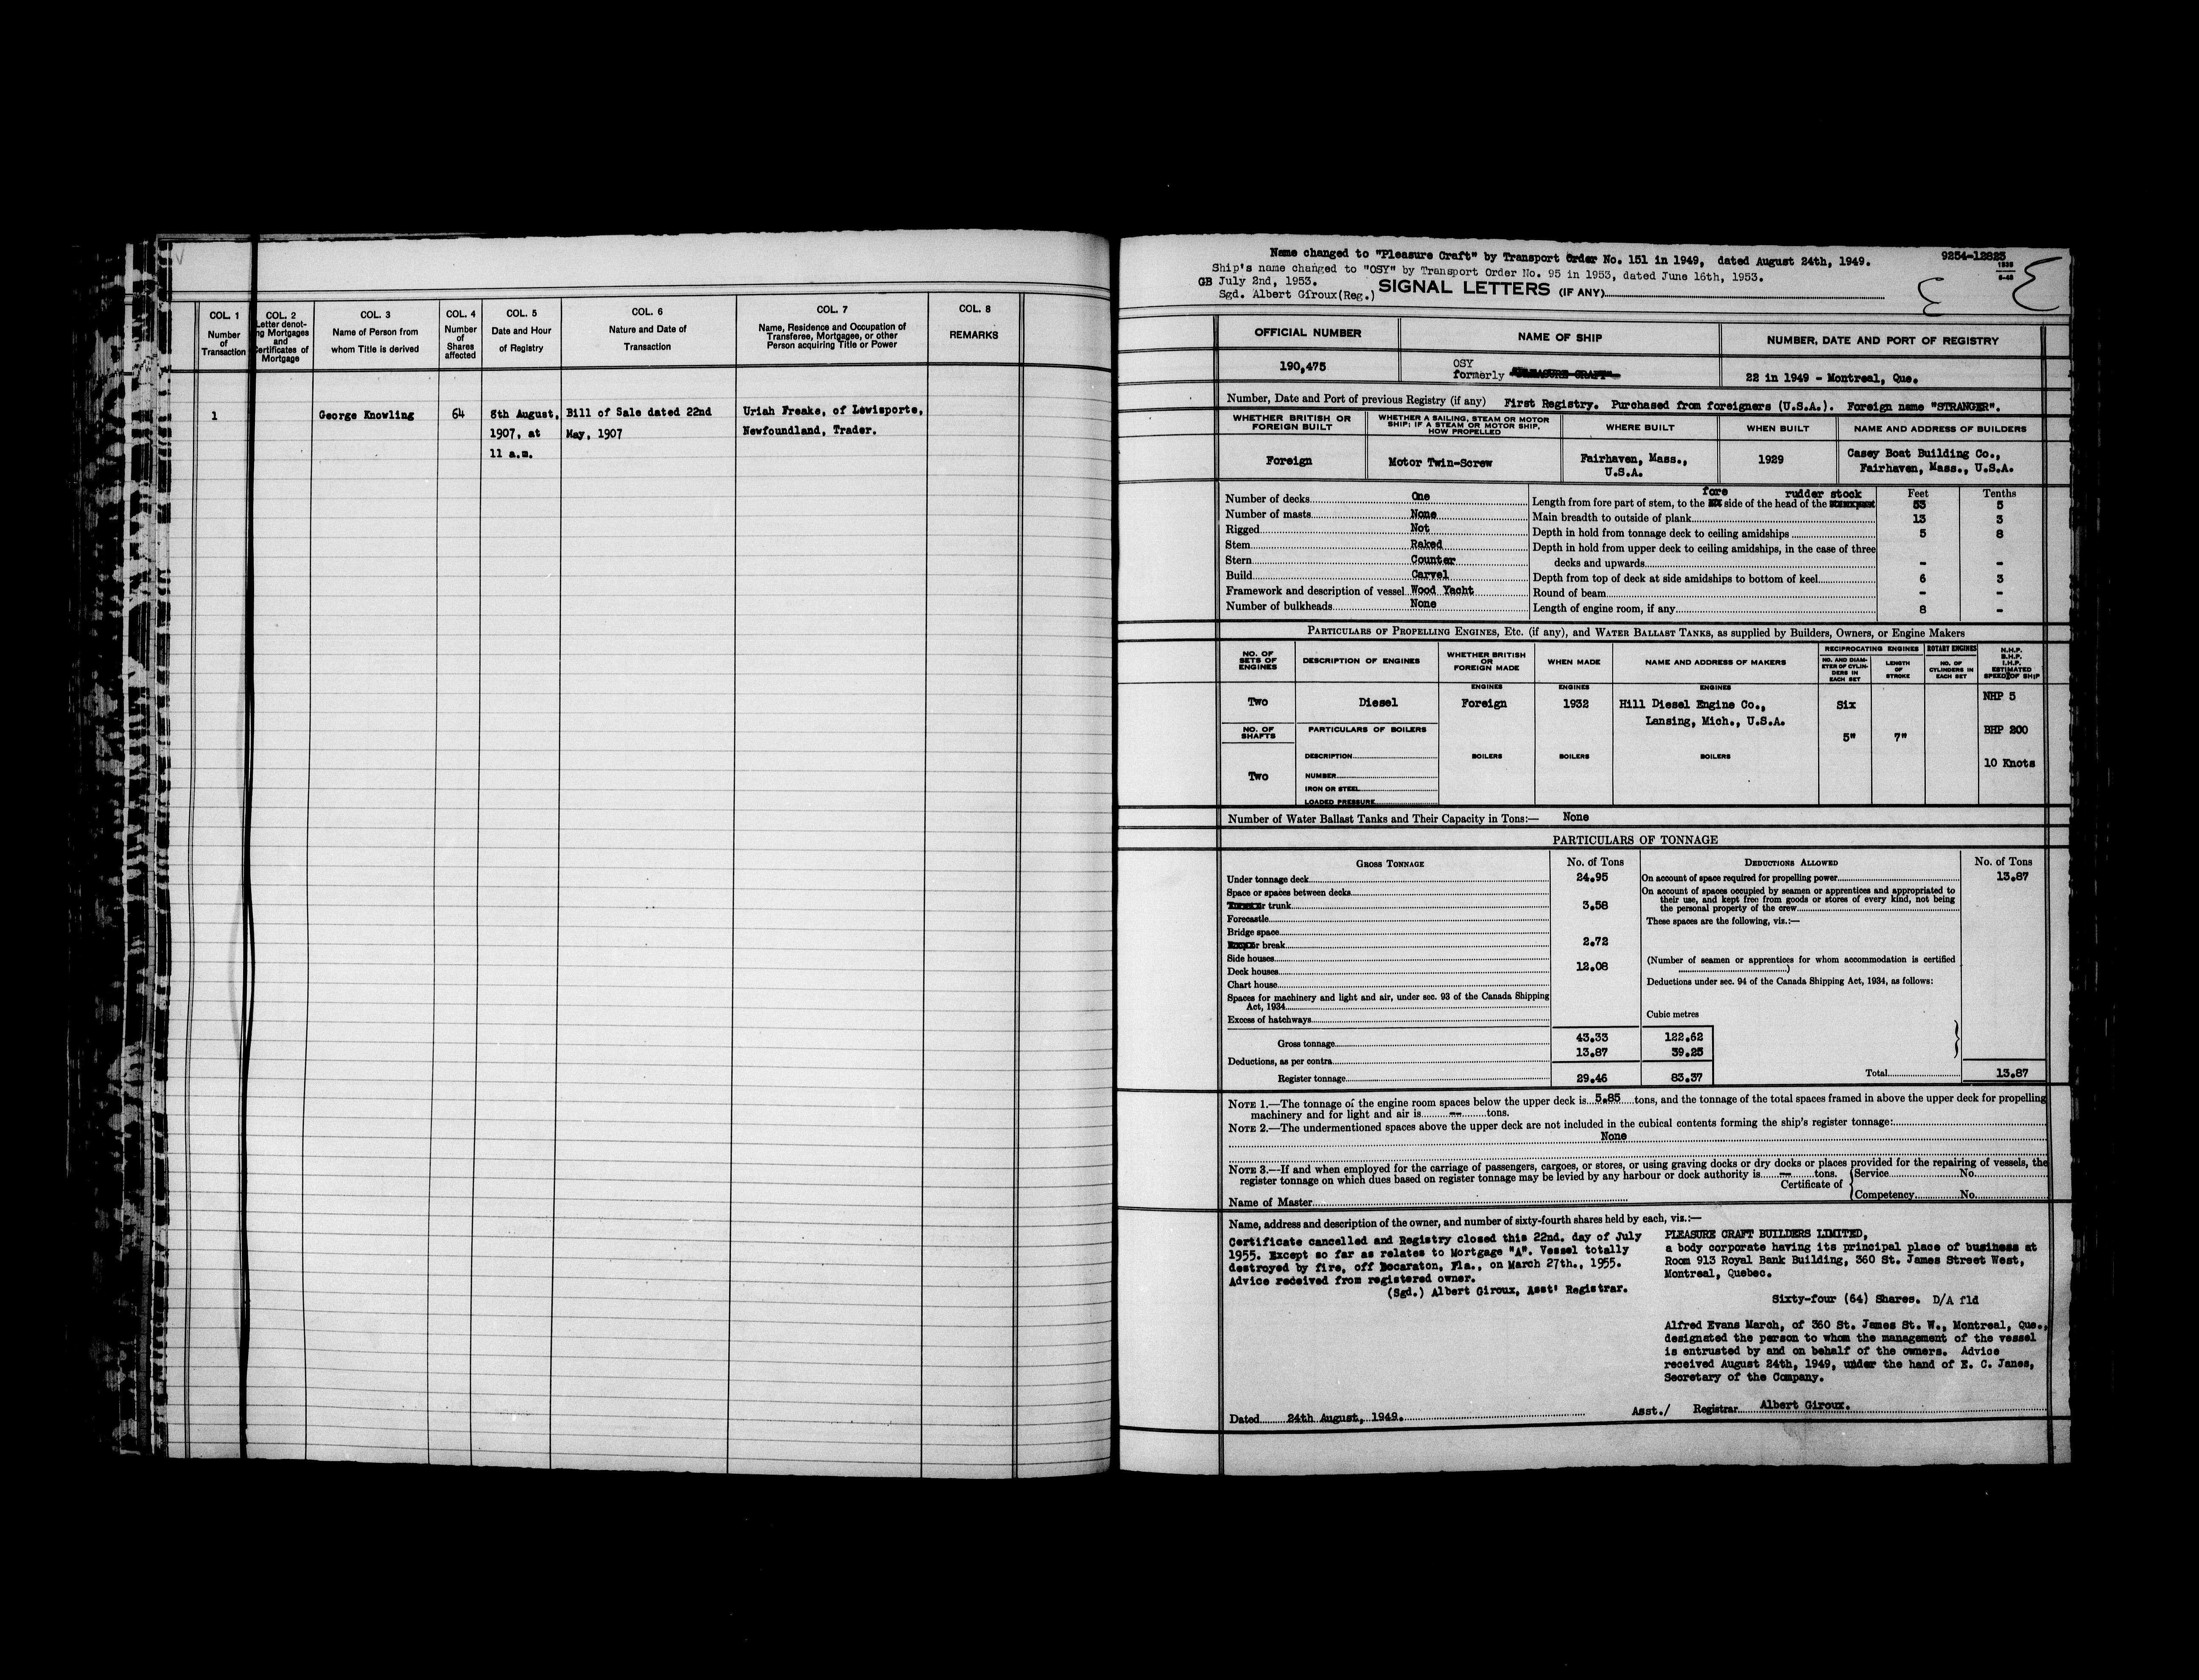 COL. 1
Number
of
Transaction
COL. 2
Letter denot-
ng Mortgages
and
Certificates of
Mortgage
COL. 3
Name of Person from
whom Title is derived
COL. 4
Number
of
Shares
affected
COL. 5
Date and Hour
of Registry
COL. 6
Nature and Date of
Transaction
COL. 7
Name, Residence and Occupation of
Transferee, Mortgagee, or other
Person acquiring Title or Power
COL. 8
REMARKS
1 George Knowling 64 8th August, Bill of Sale dated 22nd Uriah Freake, of Lewisporte,
1907, at May, 1907 Newfoundland, Trader.
11 a.m.
Name changed to "Pleasure Craft" by Transport Order No. 151 in 1949, dated August 24th, 1949.
9254-12825
Ship's name changed to "OSY" by Transport Order No. 95 in 1953, dated June 16th, 1953.
GB July 2nd, 1953.
Sgd. Albert Giroux(Reg.) SIGNAL LETTERS (IF ANY)
OFFICIAL NUMBER NAME OF SHIP NUMBER, DATE AND PORT OF REGISTRY
190,475
OSY
formerly "PLEASURE CRAFT"
22 in 1949 - Montreal, Que.
Number, Date and Port of previous Registry (if any) First Registry. Purchased from foreigners (U.S.A.). Foreign name "STRANGER".
WHETHER BRITISH OR
FOREIGN BUILT
WHETHER A SAILING, STEAM OR MOTOR
SHIP; IF A STEAM OR MOTOR SHIP,
HOW PROPELLED
WHERE BUILT
WHEN BUILT
NAME AND ADDRESS OF BUILDERS
Foreign
Motor Twin-Screw
Fairhaven, Mass.,
U.S.A.
1929
Casey Boat Building Co.,
Fairhaven, Mass., U.S.A.
Number of decks One
Number of masts None
Rigged Not
Stem Raked
Stern Counter
Build Carvel
Framework and description of vessel Wood Yacht
Number of bulkheads None
Feet Tenths
fore rudder stock
Length from fore part of stem, to the side of the head of the 53 5
Main breadth to outside of plank 13 3
Depth in hold from tonnage deck to ceiling amidships 5 8
Depth in hold from upper deck to ceiling amidships, in the case of three
decks and upwards - -
Depth from top of deck at side amidships to bottom of keel 6 3
Round of beam - -
Length of engine room, if any 8 -
PARTICULARS OF PROPELLING ENGINES, ETC. (if any), and WATER BALLAST TANKS, as supplied by Builders, Owners, or Engine Makers
NO. OF
SETS OF
ENGINES
DESCRIPTION OF ENGINES
WHETHER BRITISH
OR
FOREIGN MADE
WHEN MADE
NAME AND ADDRESS OF MAKERS
RECIPROCATING ENGINES
NO. AND DIAM-
ETER OF CYLIN-
DERS IN
EACH SET
LENGTH
OF
STROKE
ROTARY ENGINES
NO. OF
CYLINDERS IN
EACH SET
N.H.P.
B.H.P.
I.H.P.
ESTIMATED
SPEED OF SHIP
ENGINES ENGINES ENGINES
Two Diesel Foreign 1932 Hill Diesel Engine Co., Six NHP 5
Lansing, Mich., U.S.A.
NO. OF
SHAFTS
PARTICULARS OF BOILERS
5" 7" BHP 200
DESCRIPTION BOILERS BOILERS BOILERS
10 Knots
Two
NUMBER
IRON OR STEEL
LOADED PRESSURE
Number of Water Ballast Tanks and Their Capacity in Tons:— None
PARTICULARS OF TONNAGE
GROSS TONNAGE No. of Tons
Under tonnage deck 24.95
Space or spaces between decks
or trunk 3.58
Forecastle
Bridge space
or break 2.72
Side houses
Deck houses 12.08
Chart house
Spaces for machinery and light and air, under sec. 93 of the Canada Shipping
Act, 1934
Excess of hatchways
Cubic metres
Gross tonnage 43.33 122.62
Deductions, as per contra 13.87 39.25
Register tonnage 29.46 83.37
DEDUCTIONS ALLOWED No. of Tons
On account of space required for propelling power 13.87
On account of spaces occupied by seamen or apprentices and appropriated to
their use, and kept free from goods or stores of every kind, not being
the personal property of the crew
These spaces are the following, viz.:—
(Number of seamen or apprentices for whom accommodation is certified
)
Deductions under sec. 94 of the Canada Shipping Act, 1934, as follows:
Total 13.87
NOTE 1.—The tonnage of the engine room spaces below the upper deck is 5.85 tons, and the tonnage of the total spaces framed in above the upper deck for propelling
machinery and for light and air is -- tons.
NOTE 2.—The undermentioned spaces above the upper deck are not included in the cubical contents forming the ship's register tonnage:
None
NOTE 3.—If and when employed for the carriage of passengers, cargoes, or stores, or using graving docks or dry docks or places provided for the repairing of vessels, the
register tonnage on which dues based on register tonnage may be levied by any harbour or dock authority is -- tons.
Certificate of
Service No
Competency No.
Name of Master
Name, address and description of the owner, and number of sixty-fourth shares held by each, viz.:—
Certificate cancelled and Registry closed this 22nd. day of July
1955. Except so far as relates to Mortgage "A". Vessel totally
destroyed by fire, off Bocaraton, Fla., on March 27th., 1955.
Advice received from registered owner.
(Sgd.) Albert Giroux, Asst' Registrar.
PLEASURE CRAFT BUILDERS LIMITED,
a body corporate having its principal place of business at
Room 913 Royal Bank Building, 360 St. James Street West,
Montreal, Quebec.
Sixty-four (64) Shares. D/A fld
Alfred Evans March, of 360 St. James St. W., Montreal, Que.,
designated the person to whom the management of the vessel
is entrusted by and on behalf of the owners. Advice
received August 24th, 1949, under the hand of E. C. Janes,
Secretary of the Company.
Dated 24th August, 1949. Asst./ Registrar Albert Giroux.